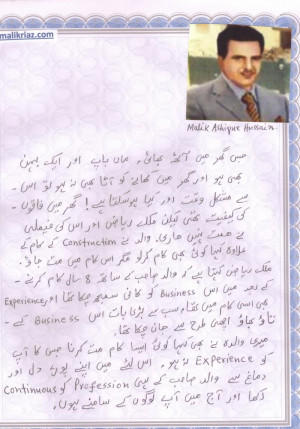 malikriaz.com
Malik Ashique Hussain.
جس گھر میں آٹھ بھائی۔ ماں باپ اور ایک بہن
بھی ہو اور گھر میں کھانے کو آٹا بھی نہ ہو تو اس
سے مشکل وقت اور کیا ہو سکتا ہے! گھر میں فاقوں
کی کیفیت تھی لیکن ملک ریاض اور اس کی فیملی
نے ہمت نہیں ہاری۔ والد نے Construction کے کام کے
علاوہ کہا کوئی بھی کام کر لو مگر اس کام میں مت جاؤ۔
ملک ریاض کہتا ہے کہ والد صاحب کے ساتھ 8 سال کام کرنے
کے بعد میں اس Business کو کافی سمجھ چکا تھا اور Experience
بھی اسی کام میں تھا، سب سے بڑی بات اس Business کے
تاؤ بھاؤ اچھی طرح سے جان چکا تھا۔
میری والدہ نے بھی کہا کوئی ایسا کام مت کرنا جس کا آپ
کو Experience نہ ہو۔ اس لئے میں اپنے پورے دل اور
دماغ سے والد صاحب کے ہی Profession کو Continuous
رکھا اور آج میں آپ لوگوں کے سامنے ہوں۔